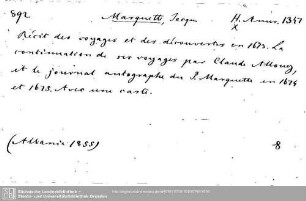 892 Marquette, Jacques H. Amer. 1347
x
Récit des voyages et des découvertes en 1673. La
continuation de ses voyages par Claude Allouez,
et le journal autographe du P. Marquette en 1674
et 1675. Avec une carte.
(Albanie 1855) 8
Sächsische Landesbibliothek -
Staats- und Universitätsbibliothek Dresden